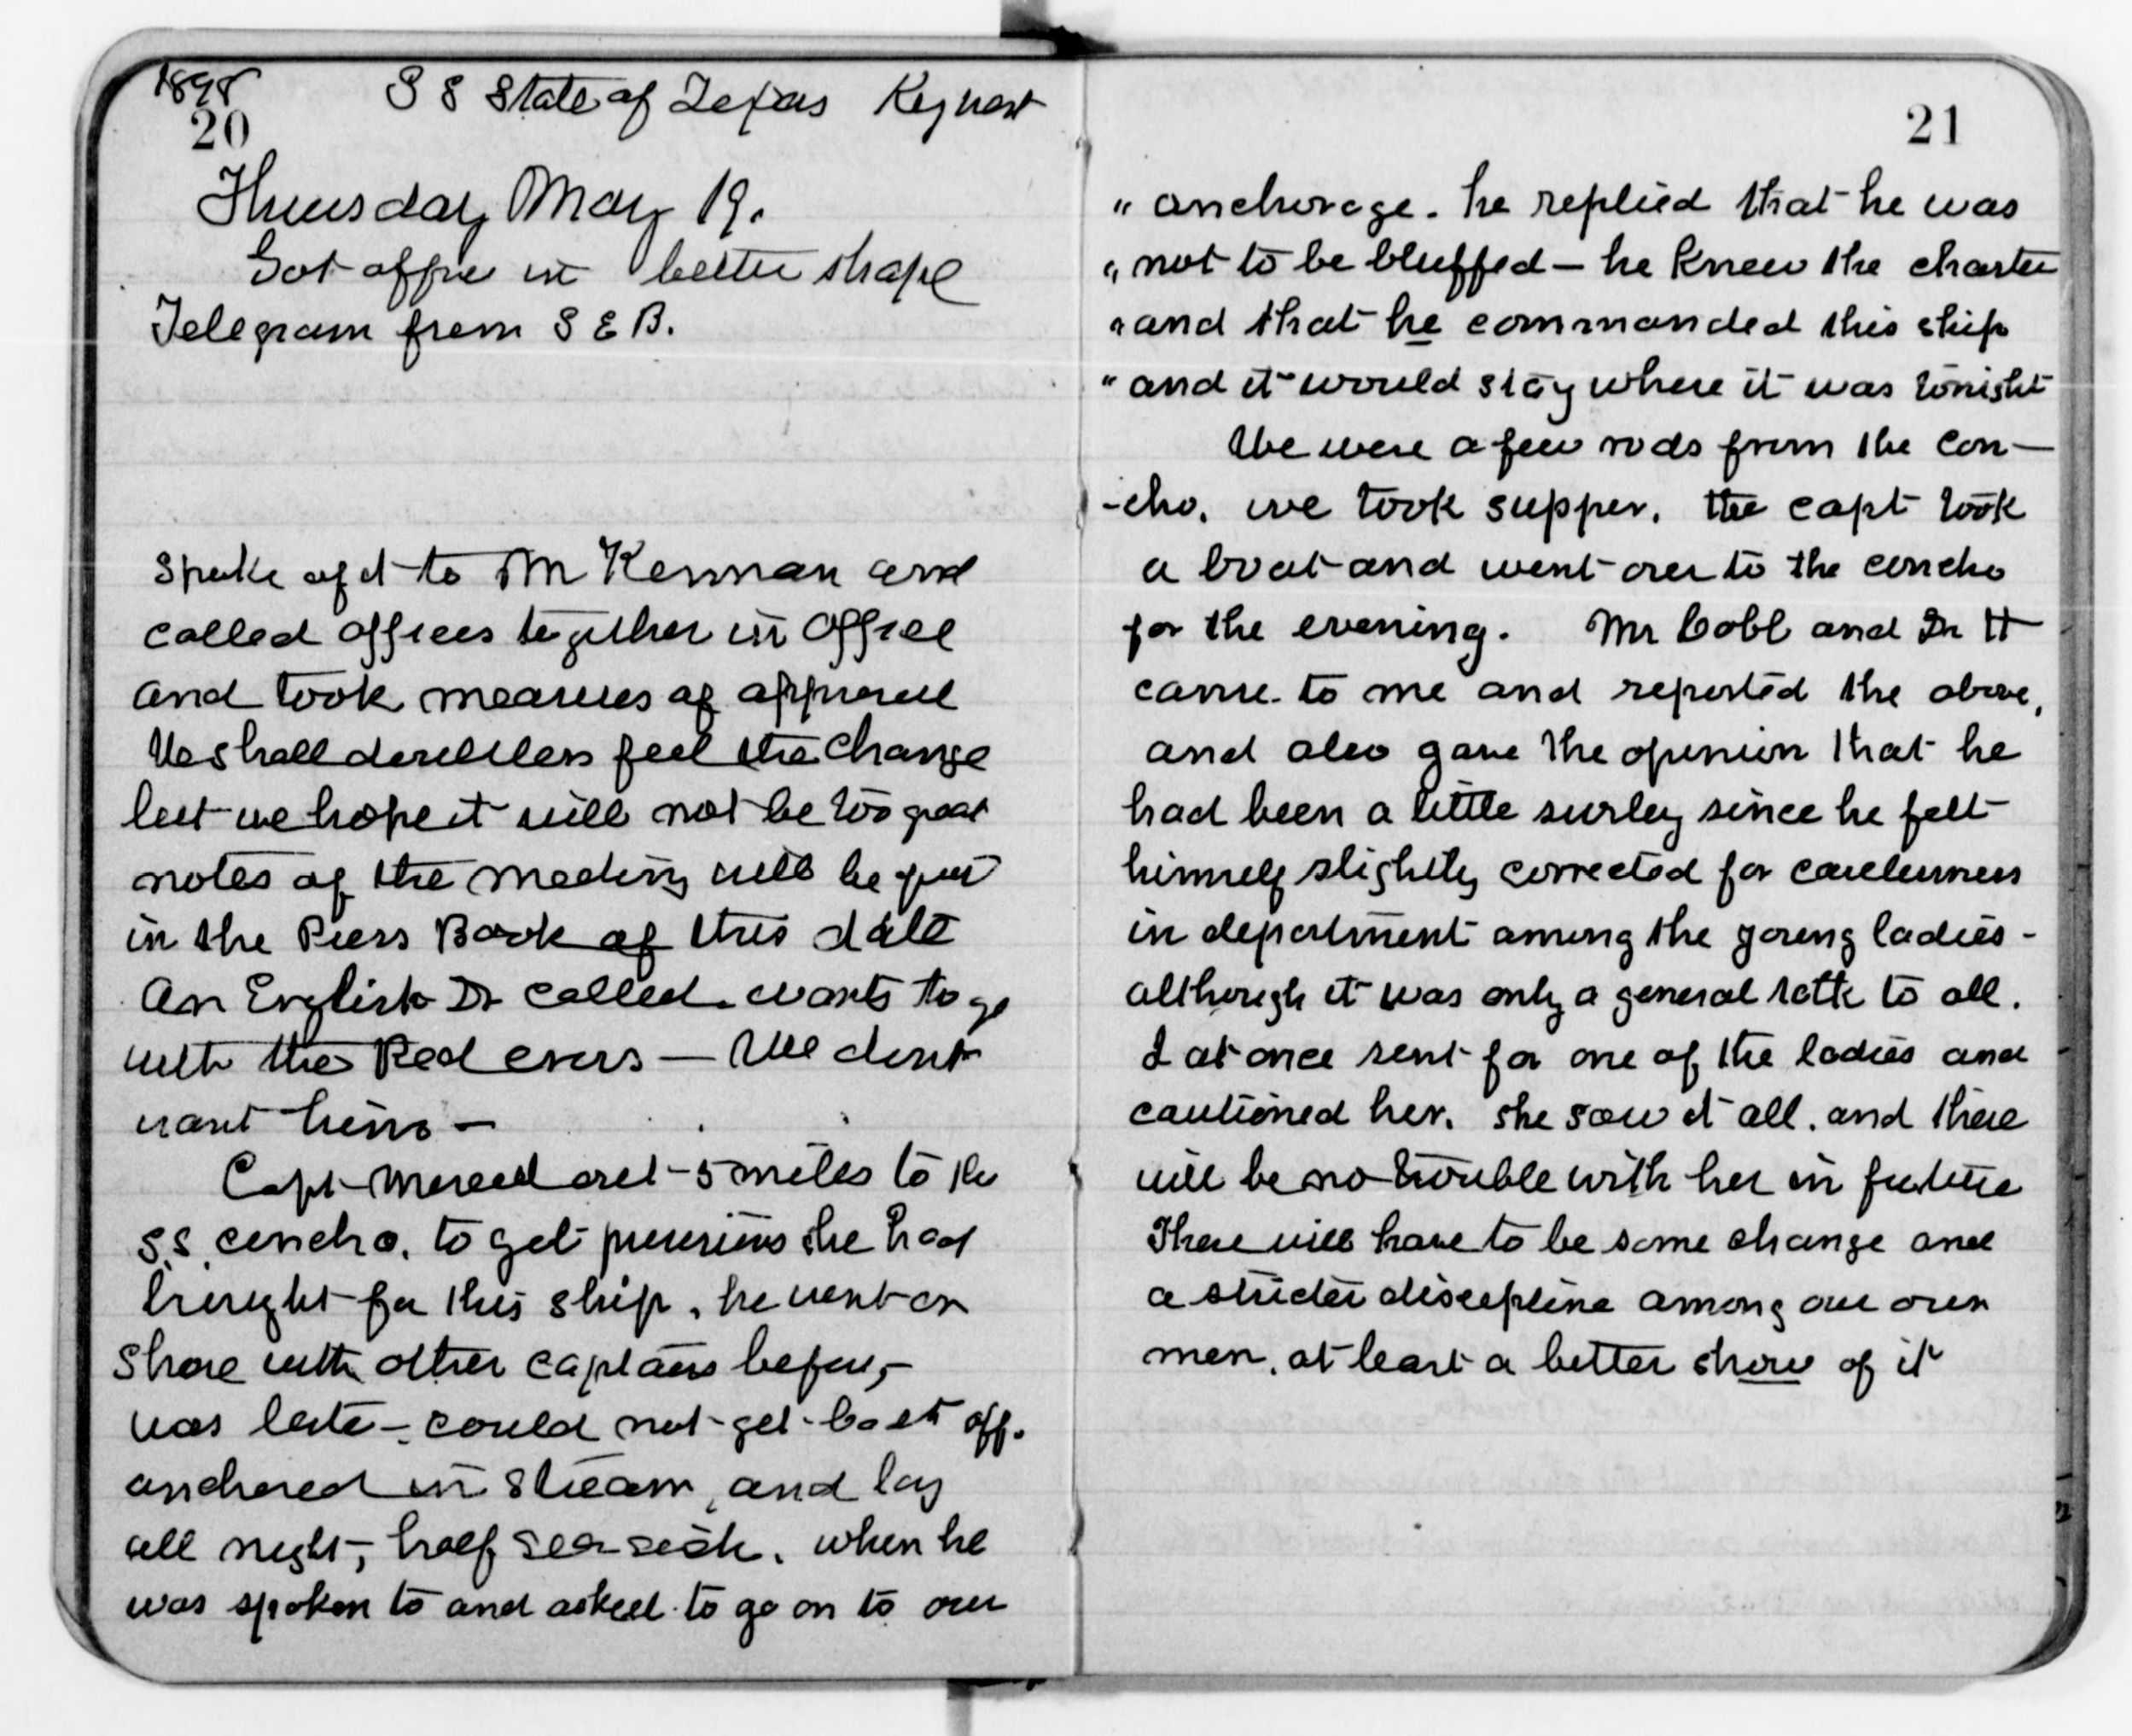 1898
20
S S State of Texas Key West
Thursday May 19.
Got office in better shape
Telegram from S E B.
Spoke of it to Mr Kennan and
called officers together in office
and took measures of approval
We shall doubtless feel the change
but we hope it will not be too great
notes of the meeting will be put
in the Press Book of this date
An English Dr called. wants to go
with the Red cross — We dont
want him —
Capt moved out - 5 miles to the
S.S. concho. to get provisions she had
brought for this ship. he went on
Shore with other captains before,-
was late - could not get boat off.
anchored in stream, and lay
all night, half sea-sick. when he
was spoken to and asked to go on to our
21
" anchorage. he replied that he was
" not to be bluffed — he knew the charter
" and that he commanded this ship
" and it would stay where it was tonight
We were a few rods from the Con-
-cho. we took supper. the capt took
a boat and went over to the concho
for the evening. Mr Cobb and Dr H
came to me and reported the above,
and also gave the opinion that he
had been a little surley since he felt
himself slightly corrected for carelessness
in deportment among the young ladies -
although it was only a general to all.
I at once sent for one of the ladies and
cautioned her. she saw it all. and there
will be no trouble with her in future
There will have to be some change and
a stricter discepline among our own
men, at least a better show of it